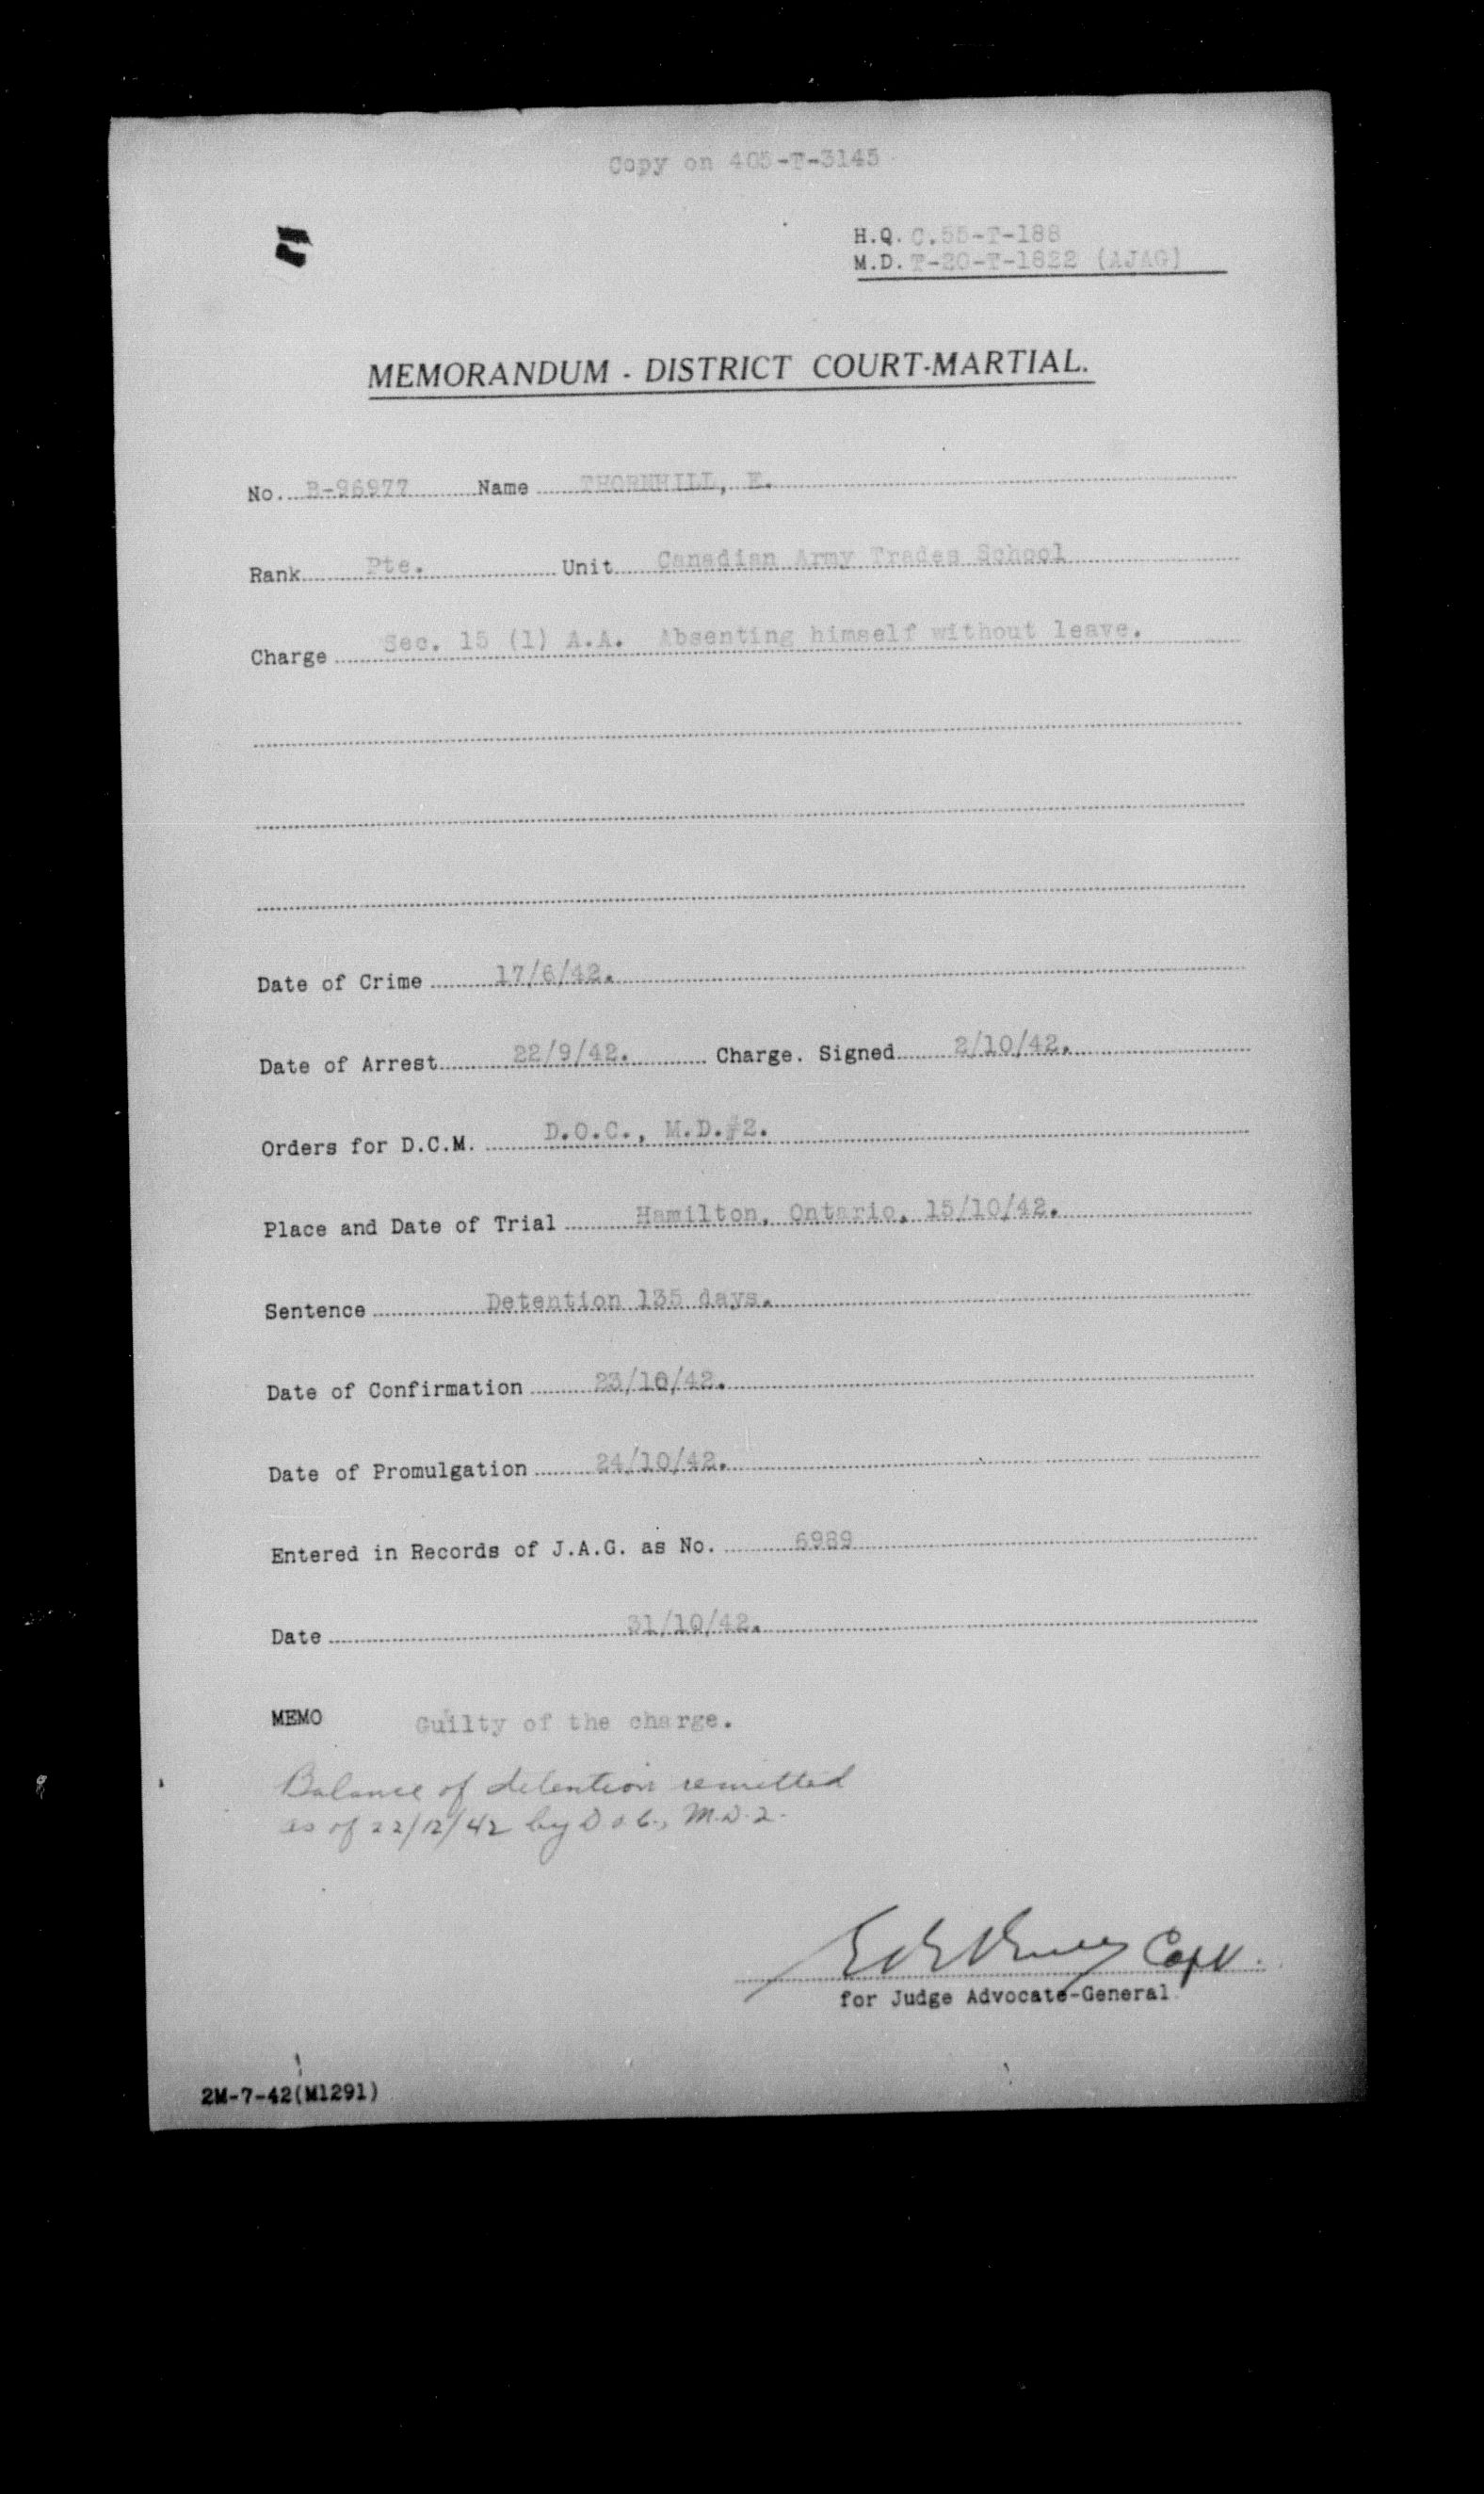 Copy on 405-T-3145
H.Q. C.55-T-188
M.D. T-20-T-1822 (AJAG)
MEMORANDUM - DISTRICT COURT-MARTIAL.
No. B-96977 Name THORNHILL, E.
Rank Pte. Unit Canadian Army Trades School
Charge Sec. 15 (1) A.A. Absenting himself without leave.
Date of Crime 17/6/42.
Date of Arrest 22/9/42. Charge. Signed 2/10/42.
Orders for D.C.M. D.O.C., M.D.#2.
Place and Date of Trial Hamilton, Ontario, 15/10/42.
Sentence Detention 135 days.
Date of Confirmation 23/10/42.
Date of Promulgation 24/10/42.
Entered in Records of J.A.G. as No. 6989
Date 31/10/42.
MEMO Guilty of the charge.
Balance of detention remitted
as of 22/12/42 by D.O.C., M.D.2.
Capt.
for Judge Advocate-General
2M-7-42(M1291)